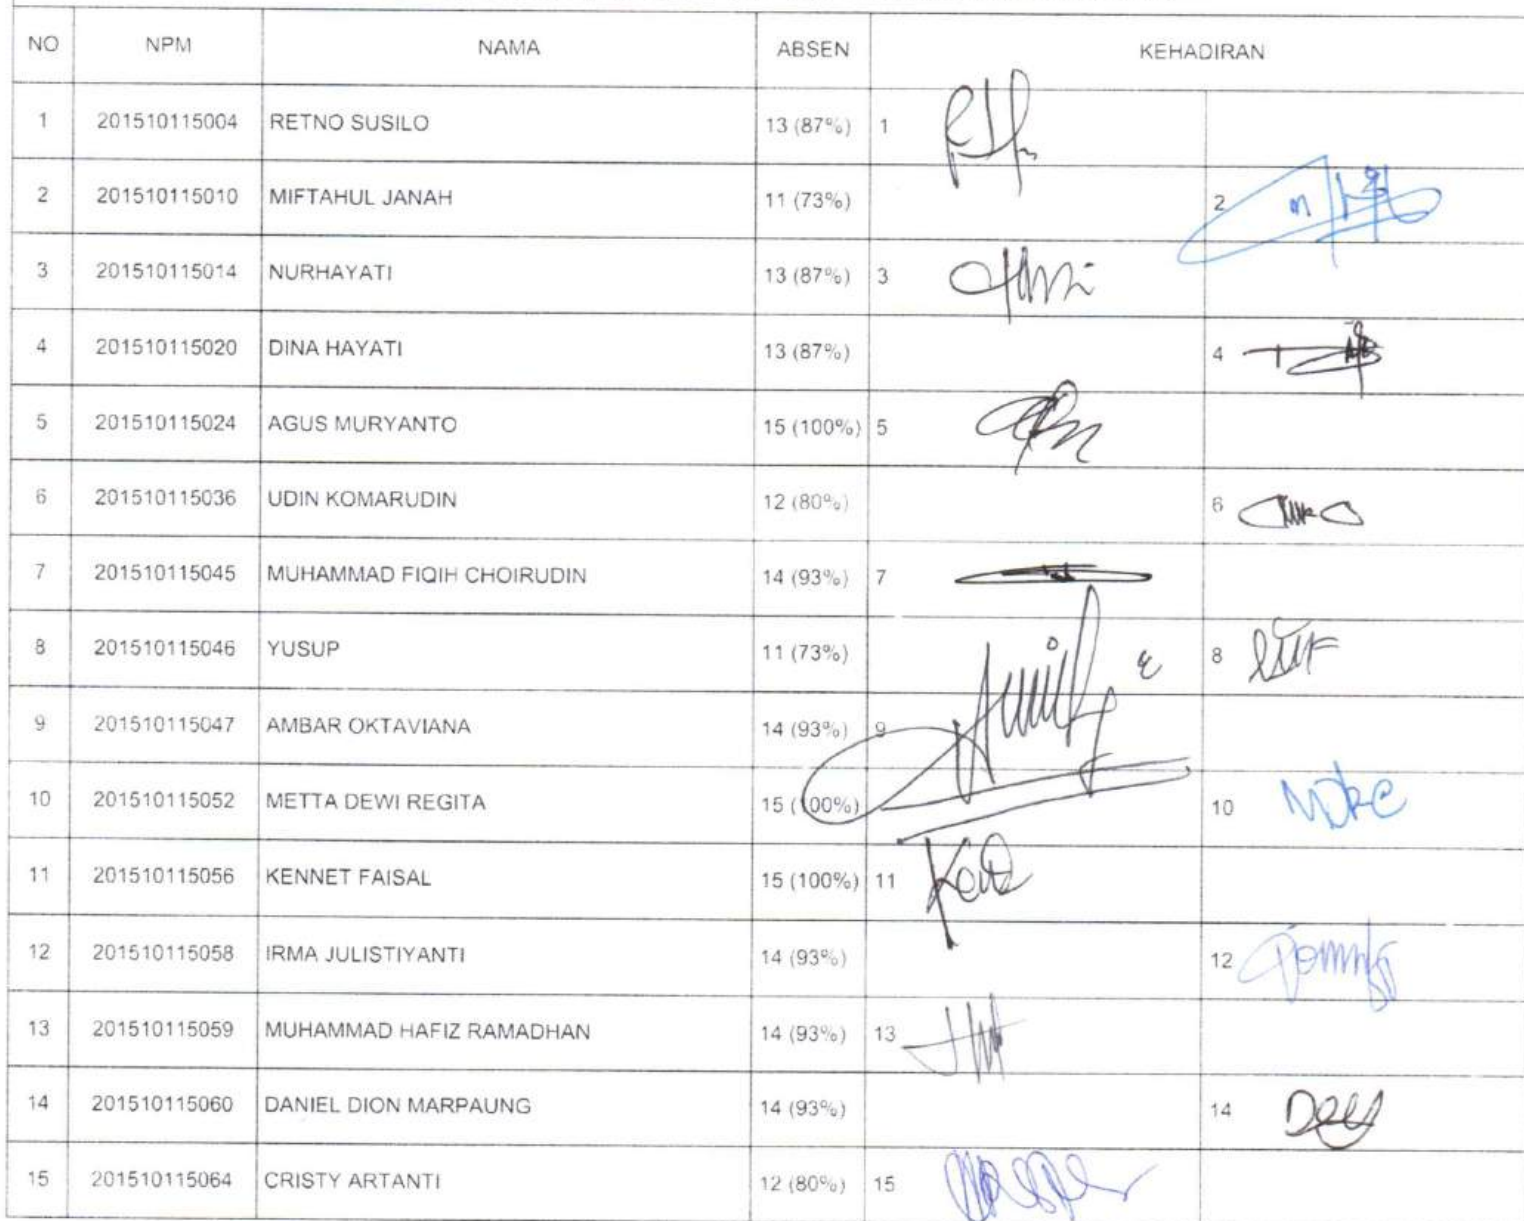 NO NPM NAMA ABSEN KEHADIRAN
1 201510115004 RETNO SUSILO 13 (87%) 1
2 201510115010 MIFTAHUL JANAH 11 (73%) 2
3 201510115014 NURHAYATI 13 (87%) 3
4 201510115020 DINA HAYATI 13 (87%) 4
5 201510115024 AGUS MURYANTO 15 (100%) 5
6 201510115036 UDIN KOMARUDIN 12 (80%) 6
7 201510115045 MUHAMMAD FIQIH CHOIRUDIN 14 (93%) 7
8 201510115046 YUSUP 11 (73%) 8
9 201510115047 AMBAR OKTAVIANA 14 (93%) 9
10 201510115052 METTA DEWI REGITA 15 (100%) 10
11 201510115056 KENNET FAISAL 15 (100%) 11
12 201510115058 IRMA JULISTIYANTI 14 (93%) 12
13 201510115059 MUHAMMAD HAFIZ RAMADHAN 14 (93%) 13
14 201510115060 DANIEL DION MARPAUNG 14 (93%) 14
15 201510115064 CRISTY ARTANTI 12 (80%) 15